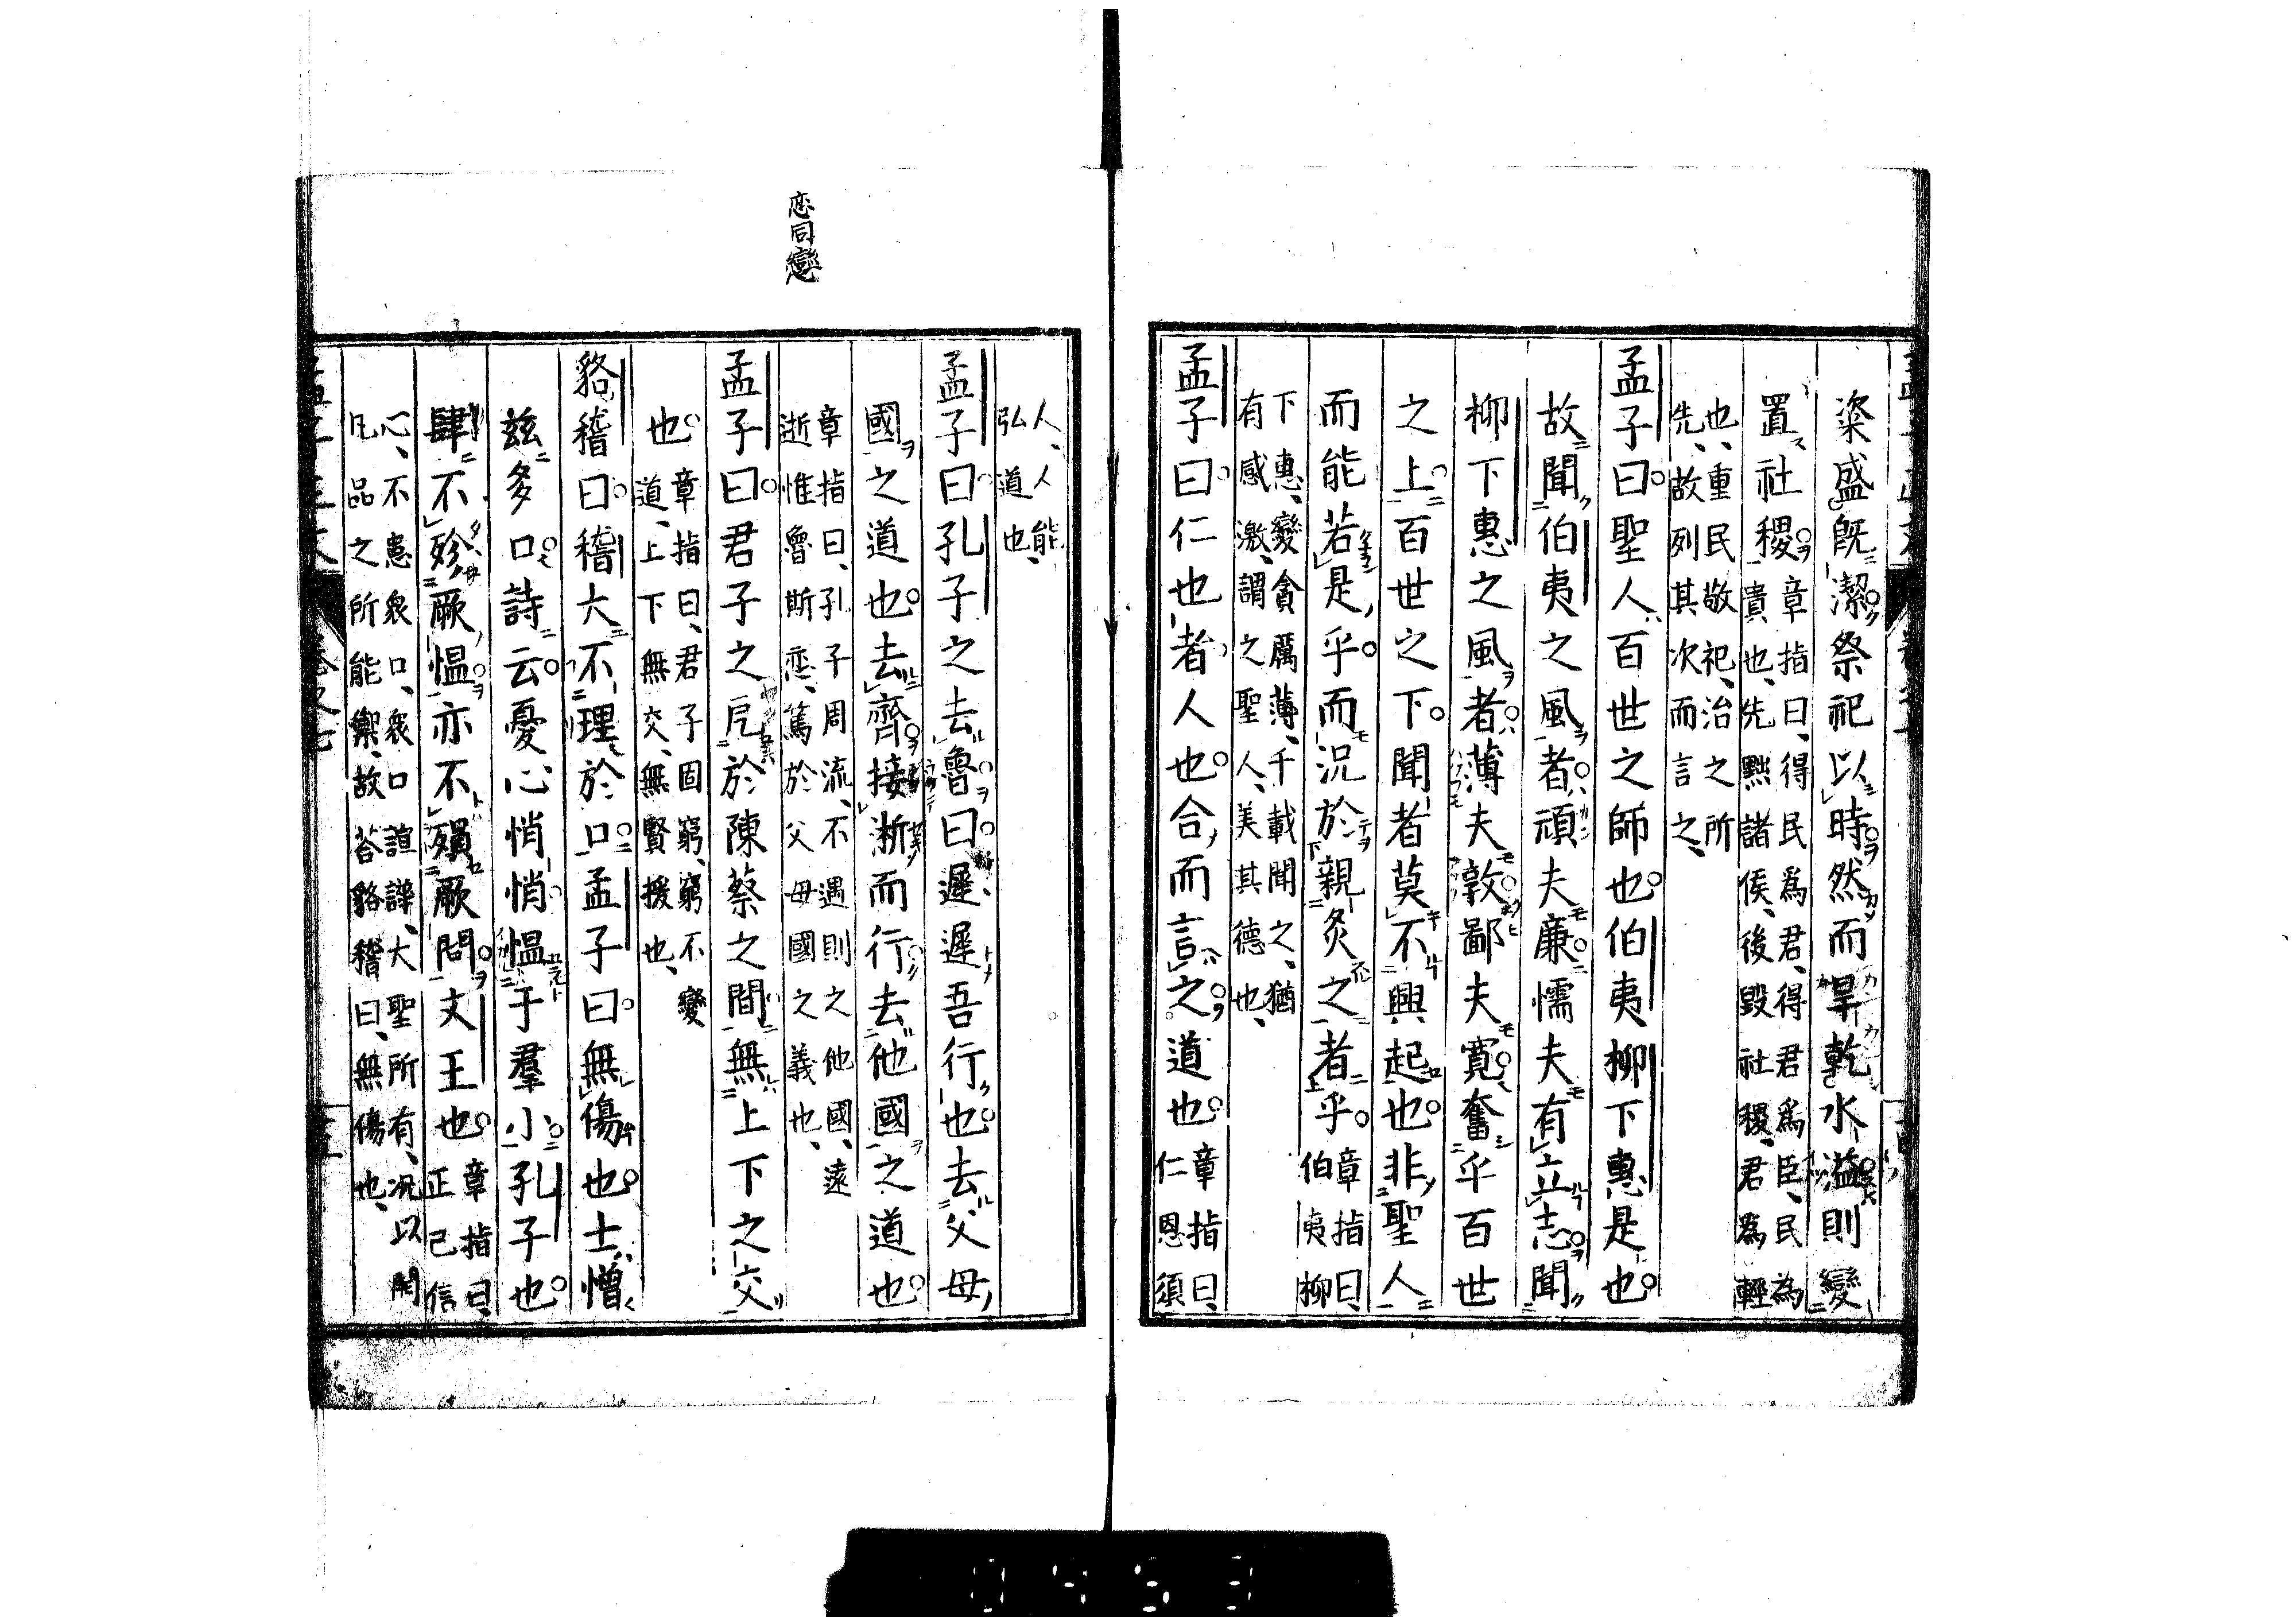 粢盛既潔祭祀以時然而旱乾水溢則變
置社稷章指曰、得民為君、得君為臣、民為
貴也、先黜諸侯、後毀社稷、君為輕
也、重民敬祀、治之所
先、故列其次而言之、
孟子曰聖人百世之師也伯夷柳下惠是也
故聞伯夷之風者頑夫廉懦夫有立志聞
柳下惠之風者薄夫敦鄙夫寬奮乎百世
之上百世之下聞者莫不興起也非聖人
而能若是乎而況於親炙之者乎章指曰、
伯夷柳
下惠、變貪厲薄、千載聞之、猶
有感激、謂之聖人、美其德也、
孟子曰仁也者人也合而言之道也章指曰、
仁恩須
人、人能
弘道也、
孟子曰孔子之去魯曰遲遲吾行也去父母
國之道也去齊接淅而行去他國之道也
章指曰、孔子周流、不遇則之他國、遠
逝惟魯斯恋、篤於父母國之義也、
恋同戀
孟子曰君子之戹於陳蔡之間無上下之交
也章指曰、君子固窮、窮不變
道、上下無交、無賢援也、
貉稽曰稽大不理於口孟子曰無傷也士憎
茲多口詩云憂心悄悄慍于羣小孔子也
肆不殄厥慍亦不殞厥問文王也章指曰、
正己信
心、不患衆口、衆口諠譁、大聖所有、況以閒
凡品之所能禦、故荅貉稽曰、無傷也、